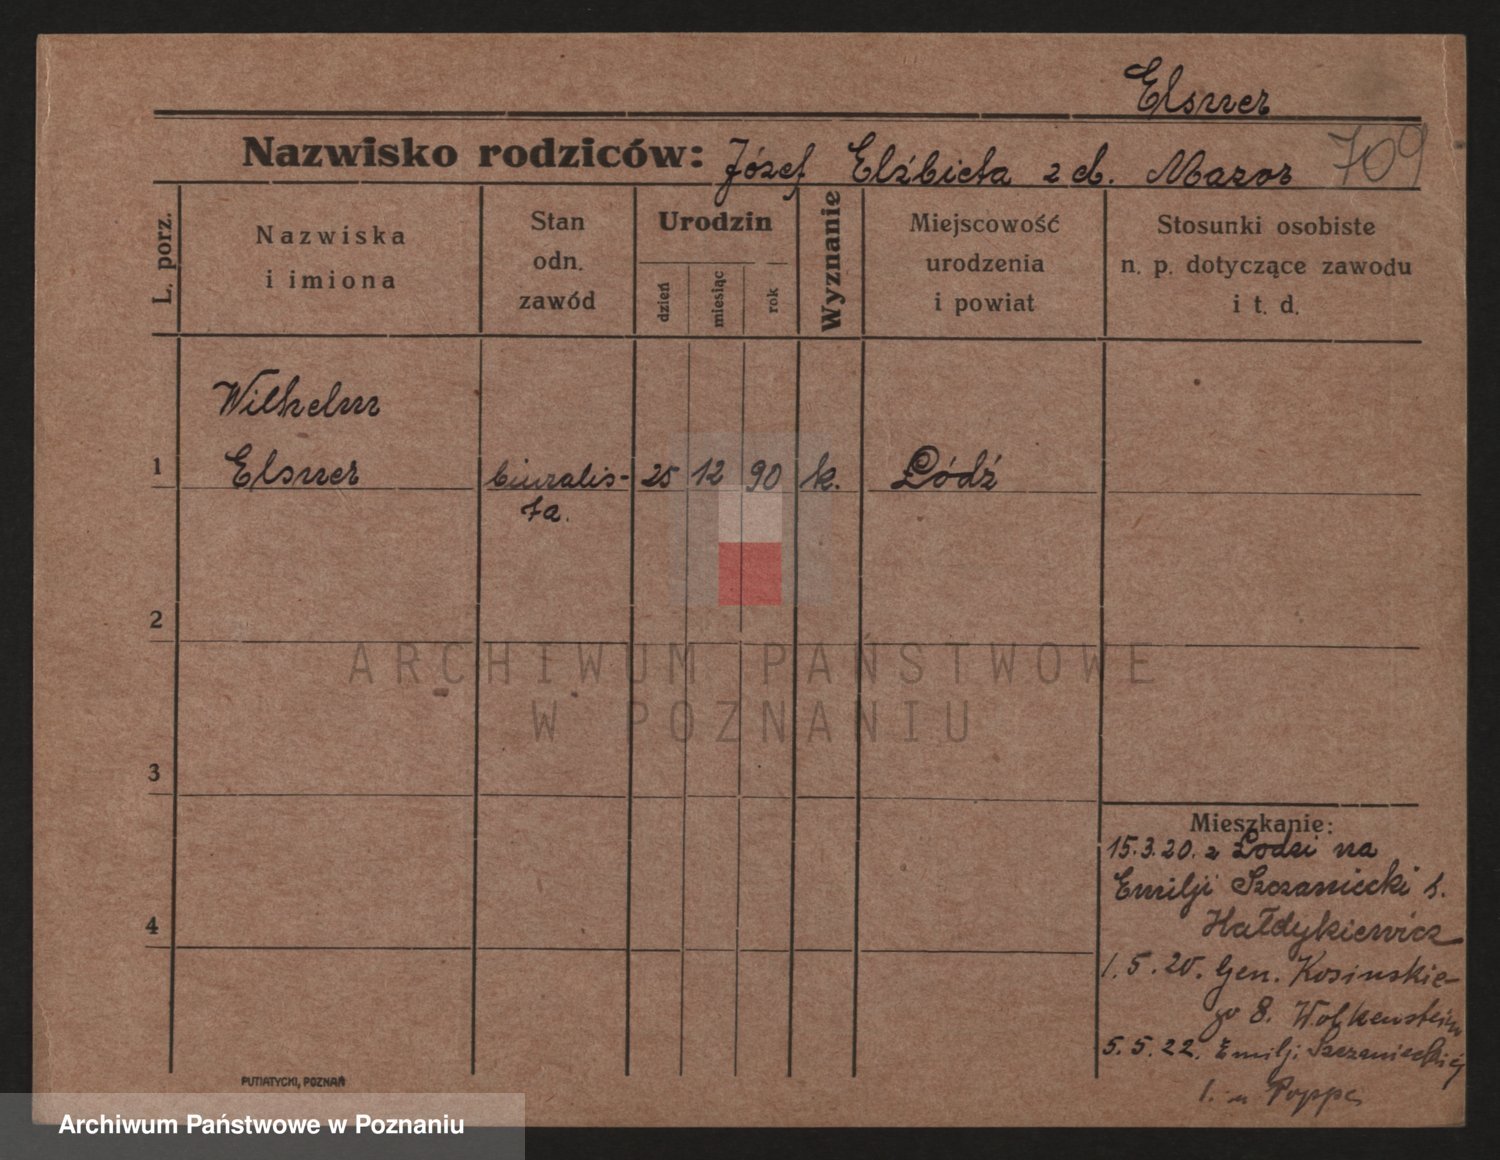 Elsner
Nazwisko rodziców: Józef Elżbieta z d. Mazor 709
L. porz.
Nazwiska
i imiona
Stan
odn.
zawód
Urodzin
dzień
miesiąc
rok
Wyznanie
Miejscowość
urodzenia
i powiat
Stosunki osobiste
n. p. dotyczące zawodu
i t. d.
Wilhelm
1 Elsner biuralis- 25 12 90 k. Łódź
ta.
2
ARCHIWUM PAŃSTWOWE
W POZNANIU
3
Mieszkanie:
15.3.20. z Łodzi na
Emilji Szczaniecki 1.
Hałdykiewicz
4
1.5.20. Gen. Kosinskie-
go 8. Wolkenstein
5.5.22. Emilji Szczanieckiej
1. u Poppe
PUTIATYCKI, POZNAŃ
Archiwum Państwowe w Poznaniu